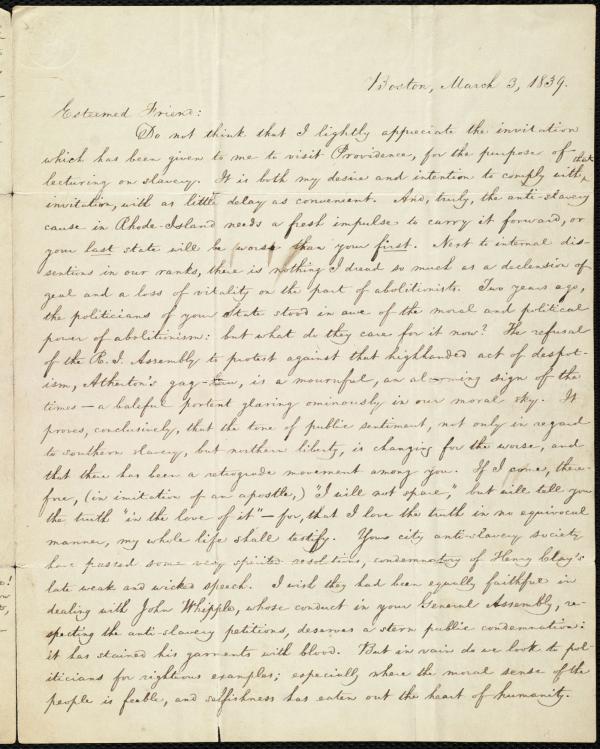 Boston, March 3, 1839.
Esteemed Friend:
Do not think that I lightly appreciate the invitation
which has been given to me to visit Providence, for the purpose of
lecturing on slavery. It is both my desire and intention to comply with that
invitation, with as little delay as convenient. And, truly, the anti-slavery
cause in Rhode-Island needs a fresh impulse to carry it forward, or
your last state will be worse than your first. Next to internal dis-
sentions in our ranks, there is nothing I dread so much as a declension of
zeal and a loss of vitality on the part of abolitionists. Two years ago,
the politicians of your State stood in awe of the moral and political
power of abolitionism: but what do they care for it now? The refusal
of the R. I. Assembly to protest against that highhanded act of despot-
ism, Atherton's gag-law, is a mournful, an alarming sign of the
times—a baleful portent glaring ominously in our moral sky. It
proves, conclusively, that the tone of public sentiment, not only in regard
to southern slavery, but northern liberty, is changing for the worse, and
that there has been a retrograde movement among you. If I come, there-
fore, (in imitation of an apostle,) "I will not spare," but will tell you
the truth "in the love of it"—for, that I love the truth in no equivocal
manner, my whole life shall testify. Your city anti-slavery society
have passed some very spirited resolutions, condemnatory of Henry Clay's
late weak and wicked speech. I wish they had been equally faithful in
dealing with John Whipple, whose conduct in your General Assembly, re-
specting the anti-slavery petitions, deserves a stern public condemnation:
it has stained his garments with blood. But in vain do we look to pol-
iticians for righteous examples; especially where the moral sense of the
people is feeble, and selfishness has eaten out the heart of humanity.